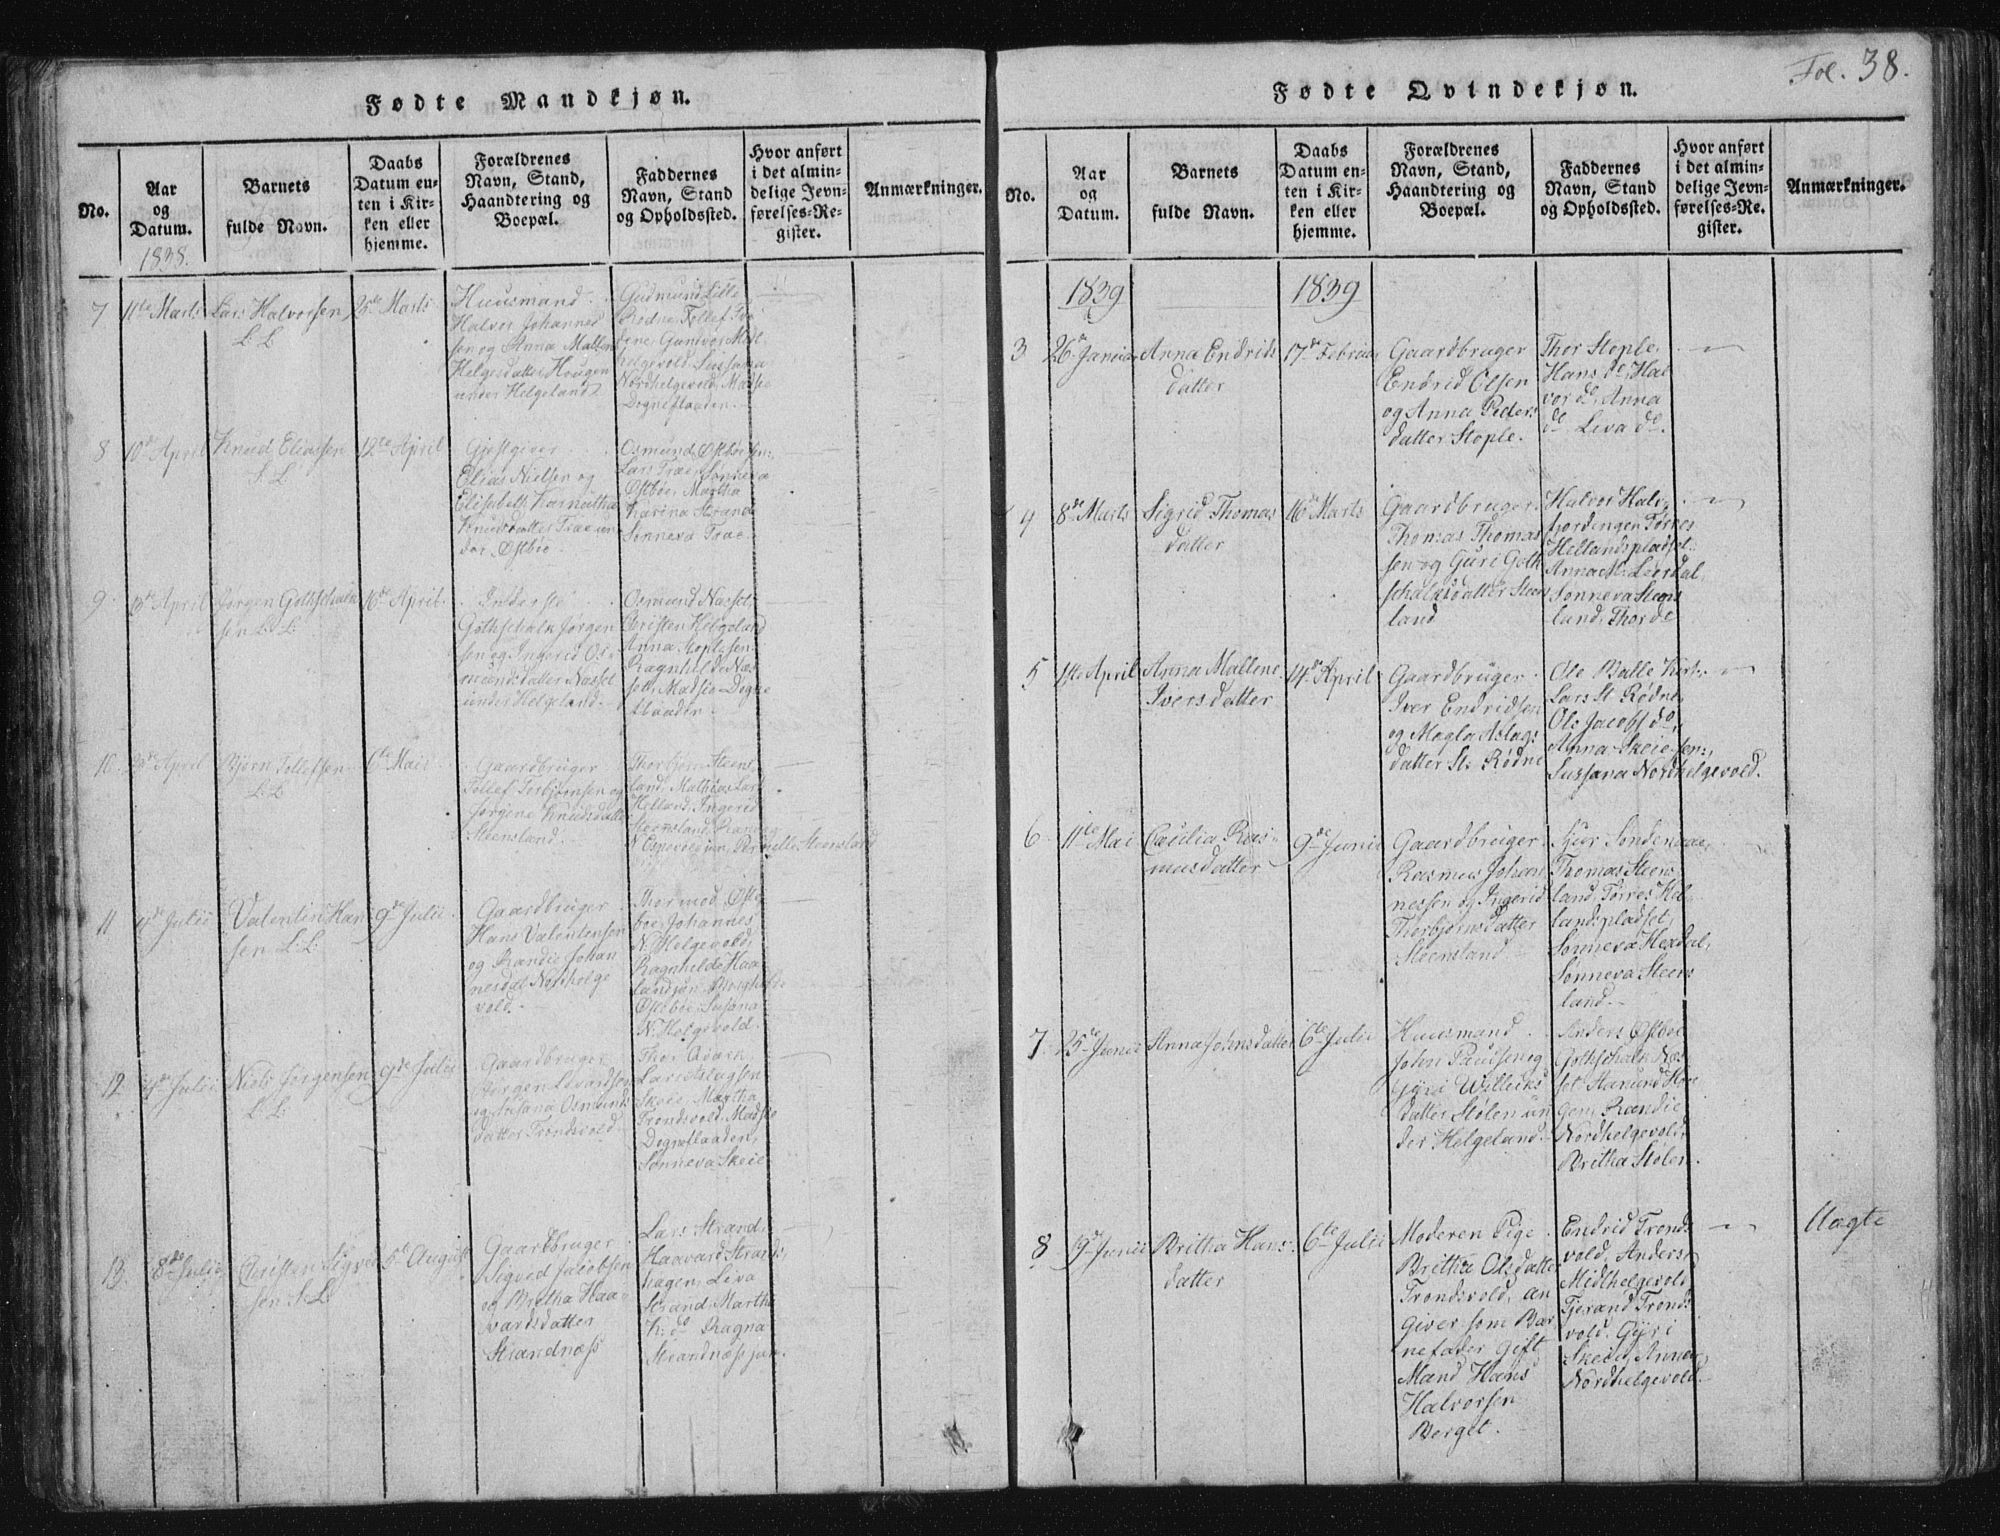 Fol. 38.
Fødte Mandkjøn.
No.
Aar
og
Datum.
Barnets
fulde Navn.
Daabs
Datum en-
ten i Kir-
ken eller
hjemme.
Forældrenes
Navn, Stand,
Haandtering og
Boepæl.
Faddernes
Navn, Stand
og Opholdssted.
Hvor anført
i det almin-
delige Jevn-
førelses-Re-
gister.
Anmærkninger.
1838.
7
11te Marts
Lars Halvorsen
L. L
25de Marts
Huusmand
Halvor Johannes
sen og Anna Mallene
Helgesdatter Hougen
under Helgeland
Gudmund Lille
Rødne, Tollef
Gunvor
helgevold, Sussanna
Nordhelgevold, Madsie
Dogneflaaden.
8
10de April
Knud Eliassen
S. L
12te April
Gjestgiver
Elias Nielsen og
Elisabeth Karnatha
Knudsdatter Trae un
der Østbøe
Osmund Østbøe sen:
Lars Trae, Sønneva
Østbøe, Martha
Karina Strand
Sønneva Trae.
9
April
Jørgen Gothschalk
sen L. L.
16de April.
Inderste
Gothschalk Jørgen
sen og Ingerid Os
mundsdatter Nasset
under Helgeland
Osmund Nasset
Christen Helgeland
Anna Stople sen:
Ragnhilde Nas
set, Madsie Dogne
flaaden.
10
April
Bjørn Tollefsen
L. L
6te Mai
Gaardbruger
Tollef Torbjørnsen og
Jørgine Knudsdatter
Steensland.
Thorbjørn Steens
land, Mathias Lars
Helland, Ingerid
Steensland,
Pernille Steensland
11
4de Julii
Valentin Han
sen L. L.
9de Julii
Gaardbruger
Hans Valentinsen
og Randie Johan
nesdat Nordhelge
vold.
Thormod Øste
boe, Johannes
N. Helgevold,
Ragnhilde Haa
land
Østebøe, Susana
N. Helgevold.
12
4de Julii
Niels Jørgensen
L. L.
9de Julii
Gaardbruger
Jørgen
og Susana Osmunds
datter Trondsvold
Thor
Lars Aslagsen
Skeie, Martha
Trondsvold, Madsie
Dogneflaaden,
Sønneva Skeie
13.
8de Julii
Christen Sigved
sen S. L.
5te August
Gaardbruger
Sigved Jacobsen
og Britha Haa-
vardsdatter
Strandnæss
Lars Strand,
Haavard Strands
hagen, Liva
Strand, Martha
K. do Ragna
Strandnæss jun.
Fødte Qvindekjøn.
No.
Aar
og
Datum.
Barnets
fulde Navn.
Daabs
Datum en-
ten i Kir-
ken eller
hjemme.
Forældrenes
Navn, Stand,
Haandtering og
Boepæl.
Faddernes
Navn, Stand
og Opholdssted.
Hvor anført
i det almin-
delige Jevn-
førelses-Re-
gister.
Anmærkninger.
1839
1839
3
26de Januar
Anna Endrids
datter
17de Februar
Gaardbruger
Endrid Olsen
og Anna Peders
datter Stople.
Thor Stople,
Hans do, Hal
vor do, Anna
do Liva do.
4
8de Marts
Sigrid Thomas
datter
16de Marts
Gaardbruger
Thomas Thomas
sen og Guri Goth
schalksdatter Steens
land
Halvor Halv
fjordingen Tørres
Hellandspladset,
Anna M. Leerdal,
Sønneva Steens
land, Thor do
5
1ste April
Anna Mallene
Iversdatter
14de April
Gaardbruger
Iver Endridsen
og Magla Aslags
datter St. Rødne
Ole Balle
Lars St. Rødne,
Ole Jacobs do,
Anna Skeie sen:,
Sussana Nordhelgevold.
6
11te Mai
Cæcilia Ras-
musdatter
9de Junii
Gaardbruger
Rasmus Johan
nessen og Ingerid
Thorbjørnsdatter
Steensland
Sjur Søndenaae,
Thomas Steens
land, Tørres Hel
landspladset,
Sønneva Hexdal,
Sønneva Steens
land.
7
25de Junii
Anna Johnsdatter
6te Julii
Huusmand
John Paulsen og
Gyri Willicks
datter Stølen un
der Helgeland
Anders Østboe
Gothschalk Nas
set, Hou
gen, Randie
Nordhelgevold,
Britha Stølen.
8
19de Junii
Britha Hans
datter
6te Julii
Moderen Pige
Britha Olsdatter
Trondsvold, an
giver som Bar
nefader Gift
Mand Hans
Halvorsen
Berget.
Endrid Tronds
vold, Anders
Midthelgevold
Tjerand Tronds
vold, Gyri
Skeie, Anna
Nordhelgevold.
Uægte